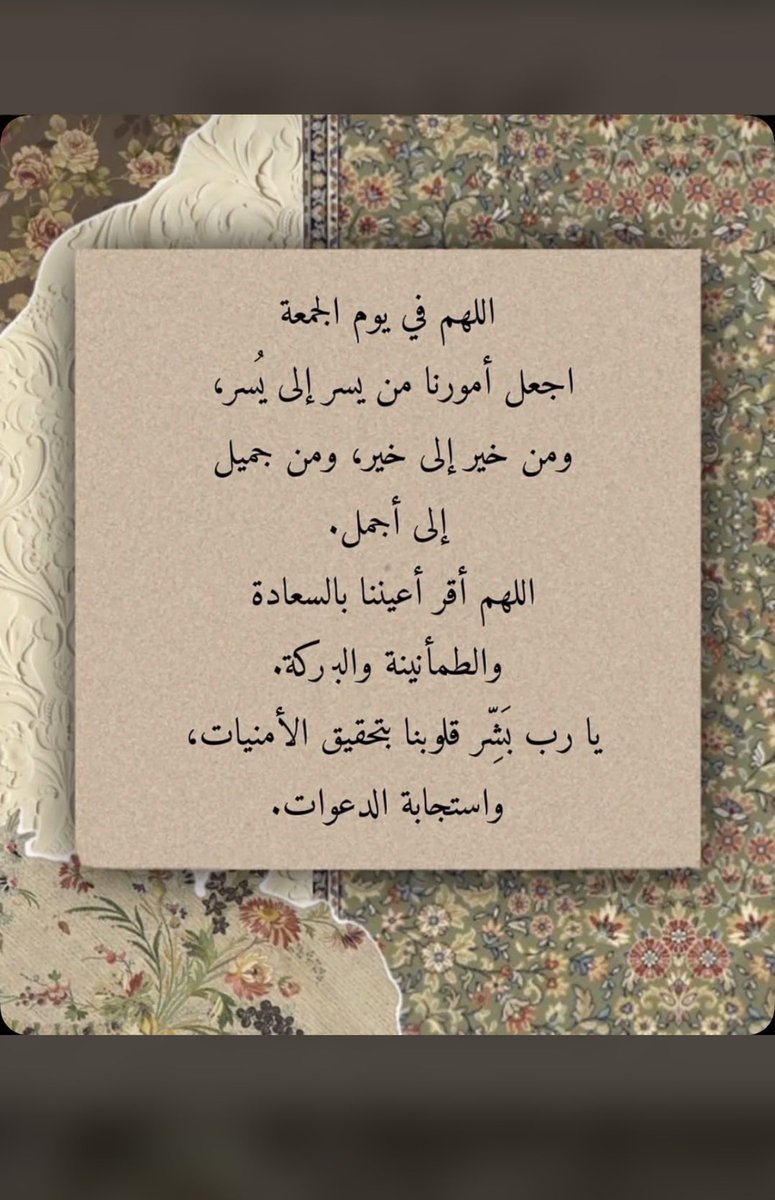 اللهم في يوم الجمعة
اجعل أمورنا من يسر إلى يُسر،
ومن خير إلى خير، ومن جميل
إلى أجمل.
اللهم أقر أعيننا بالسعادة
والطمأنينة والبركة.
يا رب بَشِّر قلوبنا بتحقيق الأمنيات،
واستجابة الدعوات.